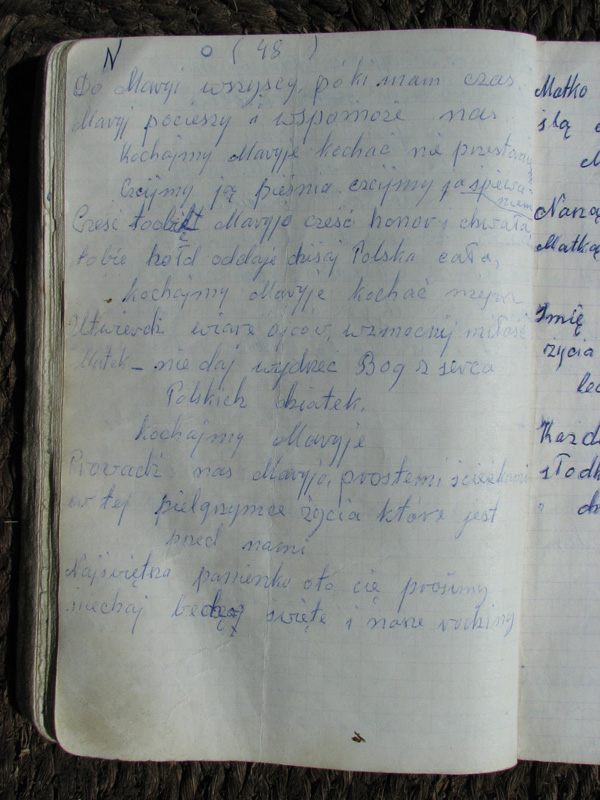 N o (48)
Do Maryji wszyscy, póki mam czas.
Maryj pocieszy i wspomoże nas
Kochajmy Maryje kochać nie przestaj
Czcijmy ją pieśnią czcijmy ją śpiewa
niem
Cześć tobie Maryjo cześć honor i chwała,
tobie hołd oddaje dzisaj Polska cała,
Kochajmy Maryje kochać
Utwierdź wiare ojców, wzmocnij miłość
Matek – nie daj wydrzeć Bog z serca
Polskich dziatek.
Kochajmy Maryje
Prowadź nas Maryjo, prostemi ścieżkami
w tej pielgrzymce życia która jest
przed nami
Najświętsza panienko oto cię prosimy
niechaj będą święte i nasze rodziny
Matko
siłą
M
Matką
Imię
życia
lec
Każd
słodk